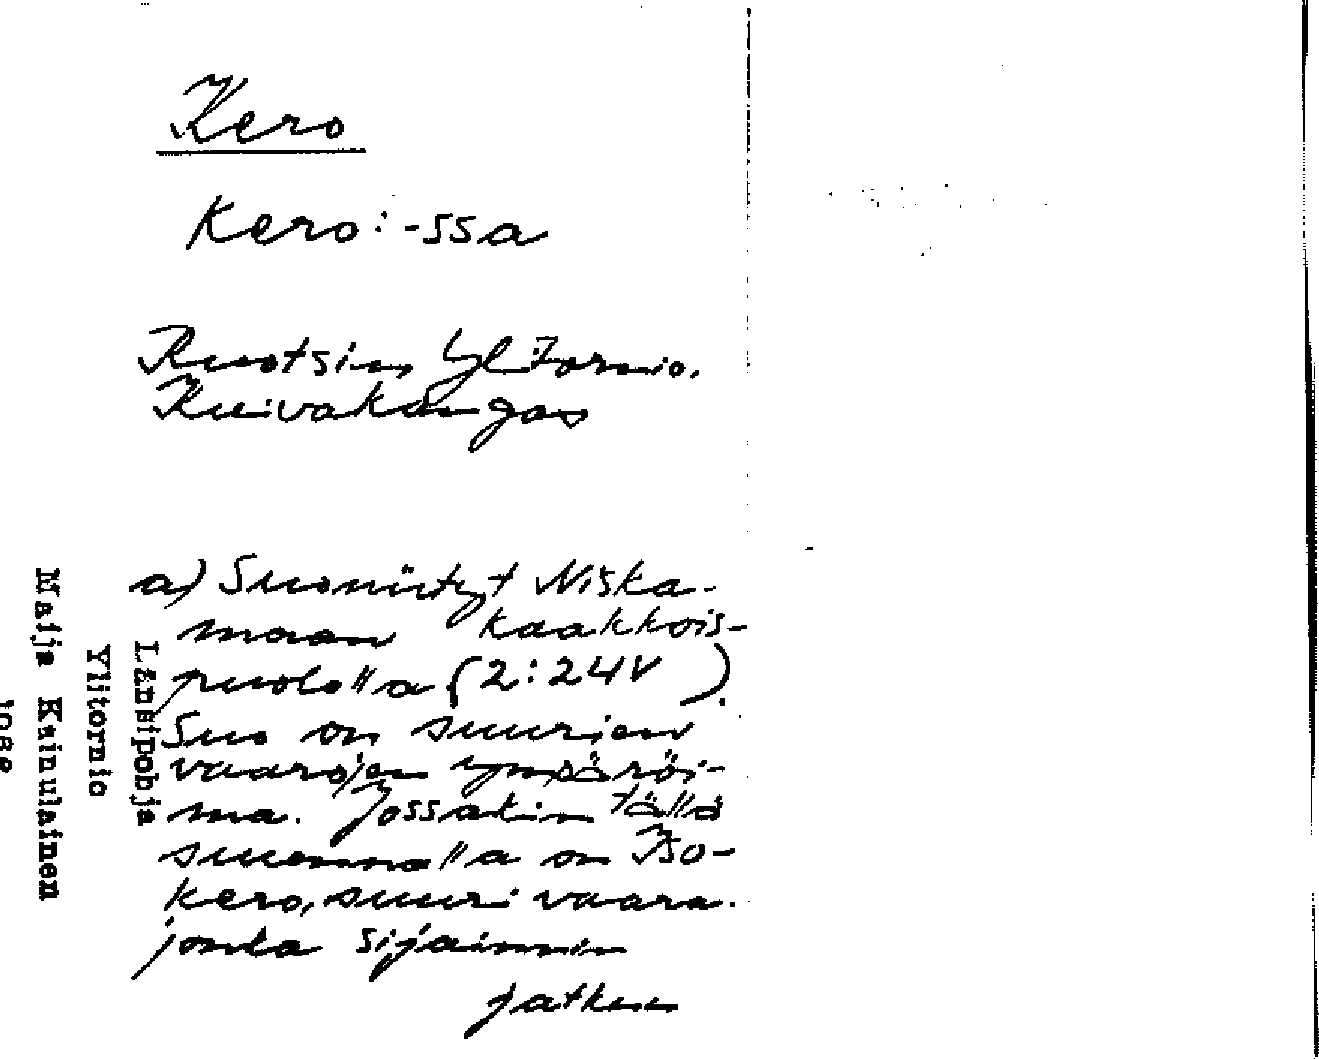 Kero
Kero: -ssa
Ruotsin Yl.Tornio.
Kuivakangas
a) Suoniityt Niska-
maan kaakkois-
puolella (2:24V).
Suo on suurien
vaarojen ympäröi-
mä. Jossakin tällä
suunnalla on Iso-
kero, suuri vaara.
jonka sijainnin
jatkuu
Länsipohja
Ylitornio
Maija Kainulainen